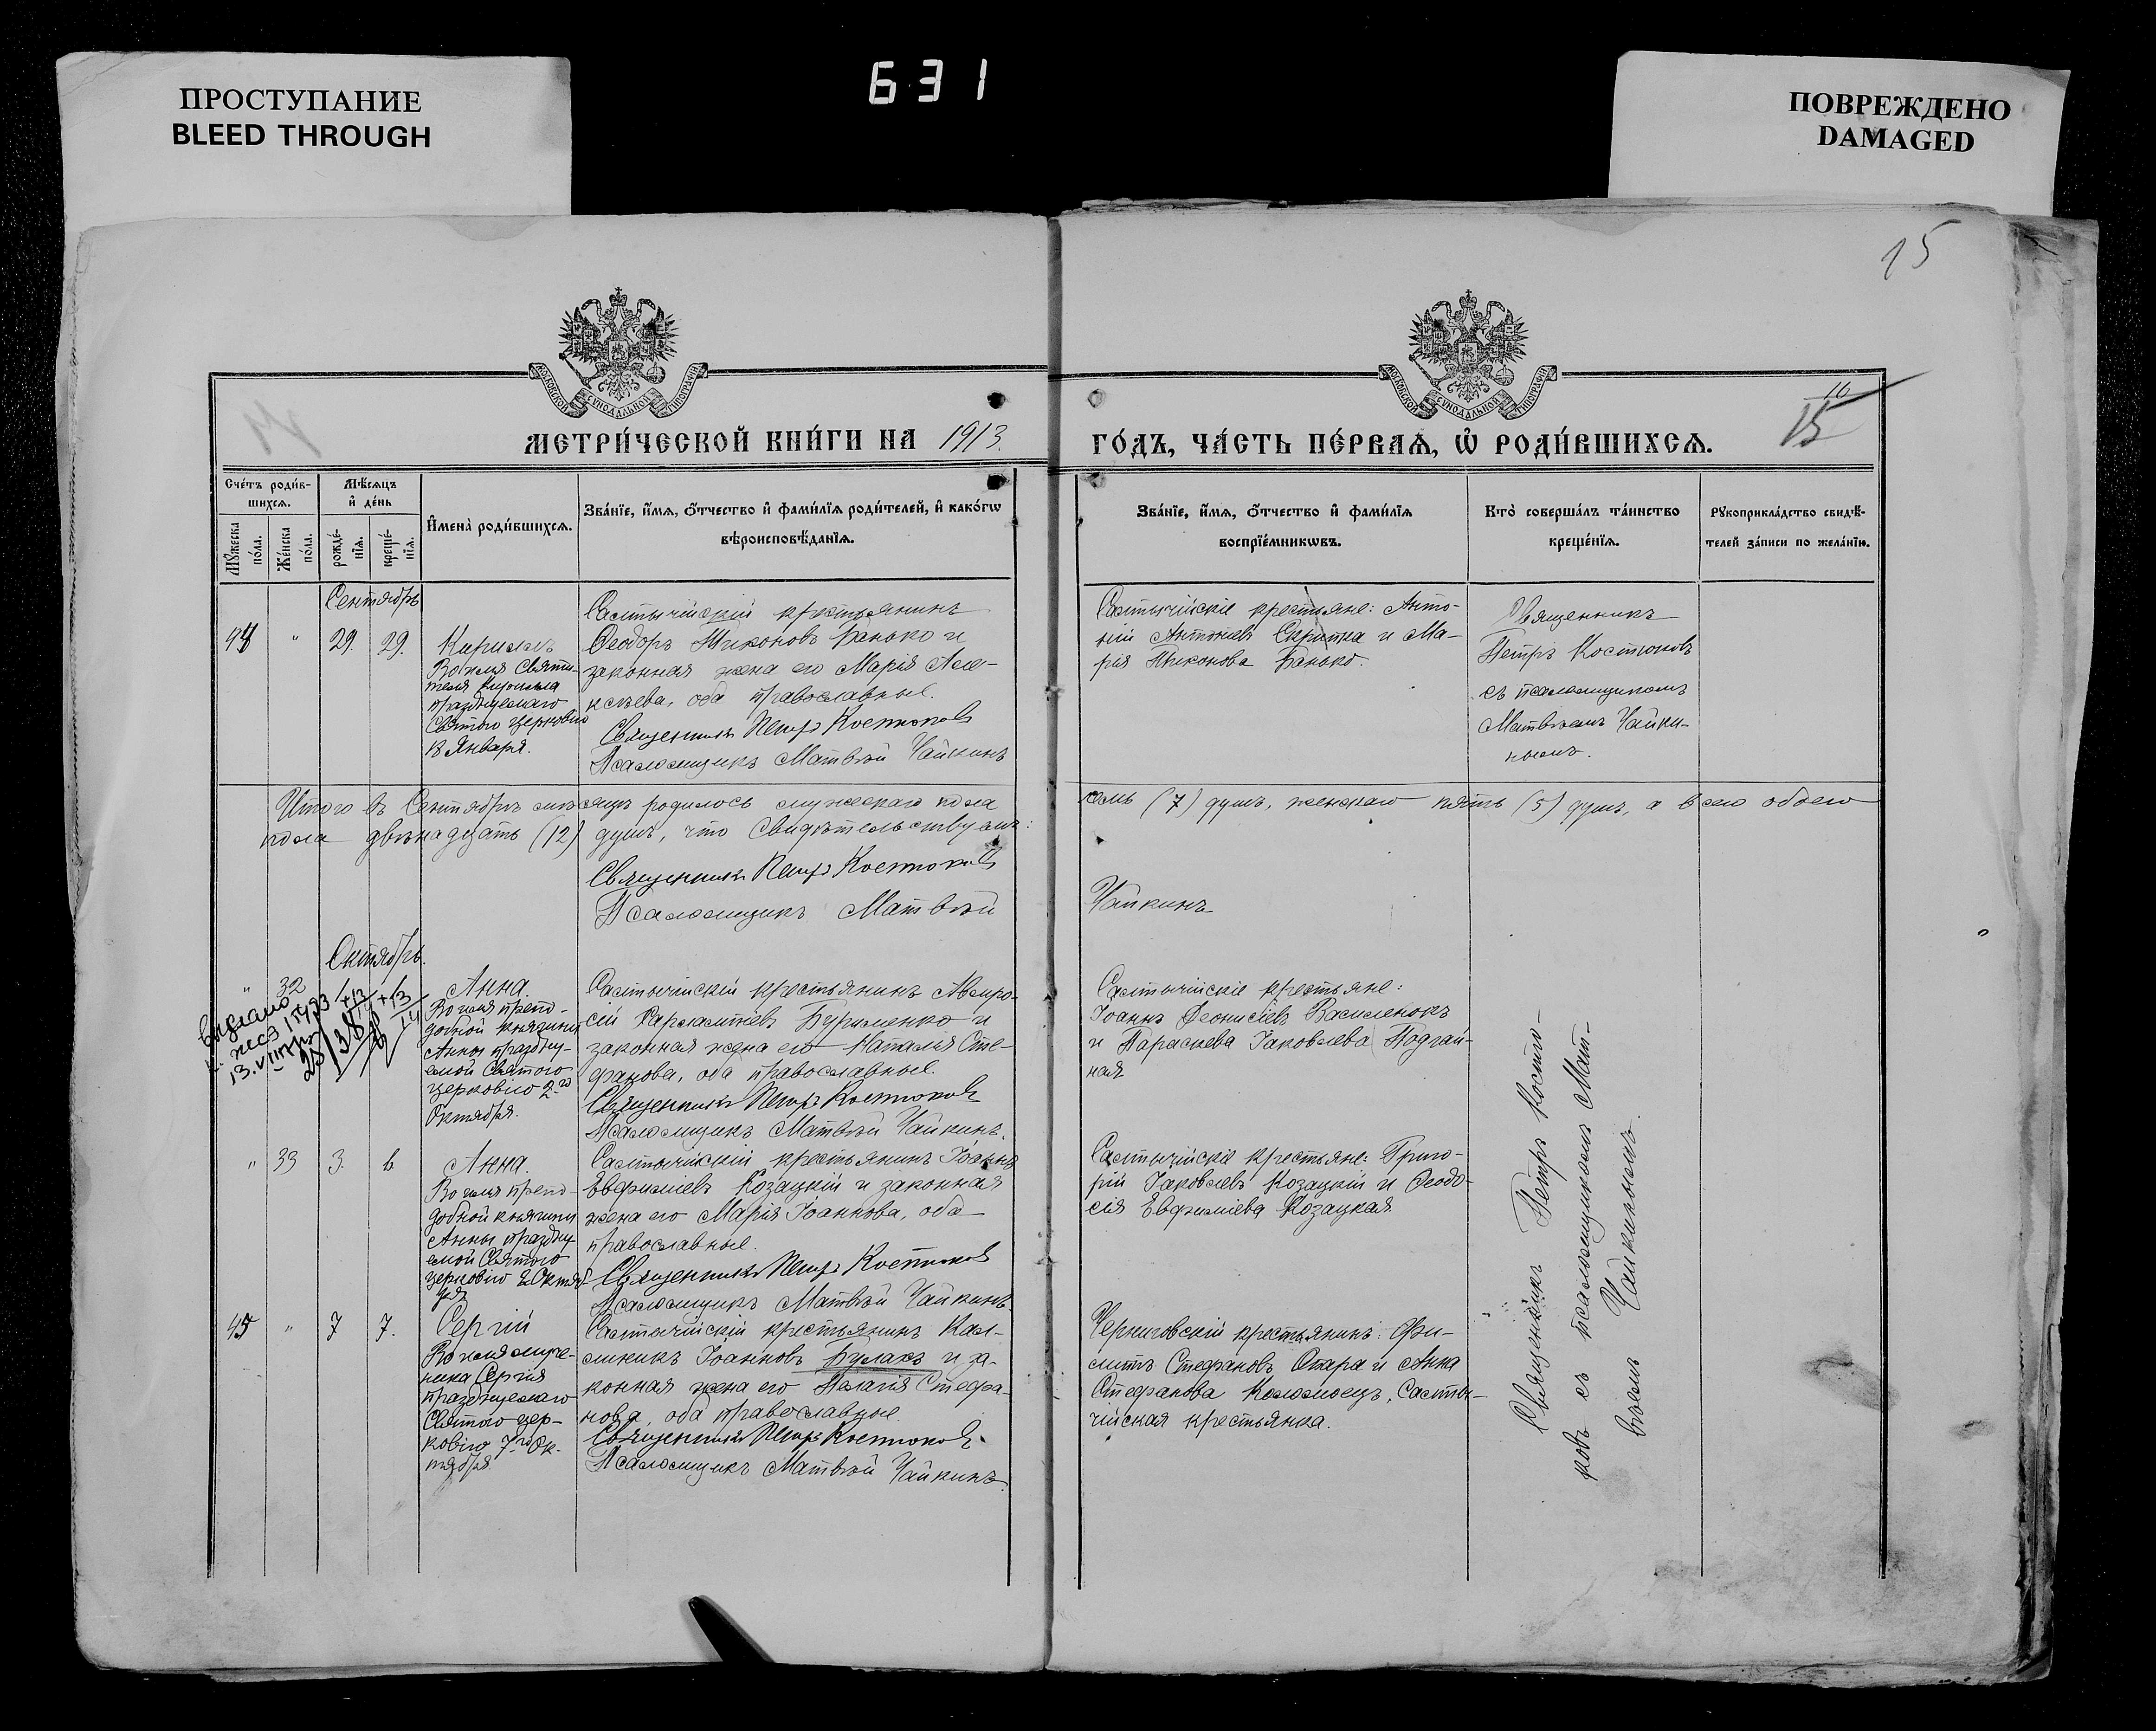 ПРОСТУПАНИЕ
BLEED THROUGH
631
ПОВРЕЖДЕНО
DAMAGED
15
МОСКОВСКОЙ СѴНОДАЛЬНОЙ ТИПОГРАФІИ
МОСКОВСКОЙ СѴНОДАЛЬНОЙ ТИПОГРАФІИ
МЕТРИ́ЧЕСКОЙ КНИ́ГИ НА 1913.
ГО́ДЪ, ЧА́СТЬ ПЕ́РВАѦ, Ѡ҆ РОДИ́ВШИХСѦ.
15
Сче́тъ роди́в-
шихсѧ.
Мꙋ́жеска
по́ла.
Же́нска
по́ла.
Мѣ́сѧцъ
и҆ де́нь
рожде́-
нїѧ.
креще́-
нїѧ.
И҆мена̀ роди́вшихсѧ.
Зва́нїе, и҆́мѧ, ѻ҆́тчество и҆ фами́лїѧ роди́телей, и҆ како́гѡ
вѣроисповѣ́данїѧ.
Зва́нїе, и҆́мѧ, ѻ҆́тчество и҆ фами́лїѧ
воспрїе́мникѡвъ.
Кто̀ соверша́лъ та́инство
креще́нїѧ.
Рꙋкоприкла́дство свидѣ́-
телей за́писи по жела́нїю.
Сентябрь
44 " 29. 29.
Кириллъ
Во имя Святи-
теля Кирилла
празднуемаго
Святою церковію
18 Января.
Салтычійскій крестьянинъ
Ѳеодоръ Никоновъ Банько и
законная жена его Марія Але-
ксѣева, оба православные.
Священникъ Петръ Костюковъ
Псаломщикъ Матвѣй Чайкинъ
Салтычійскіе крестьяне: Анто-
ній Антоніевъ Скрипка и Ма-
рія Никонова Банько.
Священникъ
Петръ Костюковъ
съ псаломщикомъ
Матвѣемъ Чайки-
нымъ.
Итого въ Сентябрѣ мѣсяцѣ родилось мужескаго пола
семь (7) душъ, женскаго пять (5) душъ, а всего обоего
пола двѣнадцать (12) душъ, что свидѣтельствуемъ:
Священникъ Петръ Костюковъ
Псаломщикъ Матвѣй
Чайкинъ
Октябрь.
" 32
Выдано
Анна
Во имя препо-
добной княгини
Анны праздну-
емой Святою
церковію 2-го
Октября.
Салтычійскій крестьянинъ Амвро-
сій Харлампіевъ Бурименко и
законная жена его Наталья Сте-
фанова, оба православные.
Священникъ Петръ Костюковъ
Псаломщикъ Матвѣй Чайкинъ.
Салтычійскіе крестьяне:
Іоаннъ Діонисіевъ Василенокъ
и Параскева Іаковлева Подгай-
ная
" 33 3. 6
Анна.
Во имя препо-
добной княгини
Анны праздну-
емой Святою
церковію 2 Октяб-
ря
Салтычійскій крестьянинъ Іоаннъ
Евфиміевъ Козацкій и законная
жена его Марія Іоаннова, оба
православные.
Священникъ Петръ Костюковъ
Псаломщикъ Матвѣй Чайкинъ.
Салтычійскіе крестьяне: Григо-
рій Іаковлевъ Козацкій и Ѳеодо-
сія Евфиміева Козацкая
45 " 7 7.
Сергій
Во имя муче-
ника Сергія
празднуемаго
Святою цер-
ковію 7-го Ок-
тября
Салтычійскій крестьянинъ Кал-
линикъ Іоанновъ Булахъ и за-
конная жена его Пелагія Стефа-
нова, оба православные
Священникъ Петръ Костюковъ
Псаломщикъ Матвѣй Чайкинъ.
Черниговскій крестьянинъ: Фи-
липъ Стефановъ Опара и Анна
Стефанова Коломоецъ, Салты-
чійская крестьянка.
Священникъ Петръ Костю-
ковъ съ псаломщикомъ Мат-
вѣемъ Чайкинымъ.